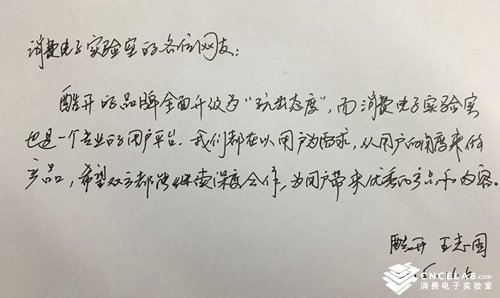 消费电子实验室的各位网友:
酷开的品牌全面升级为“玩出态度”,而消费电子实验室
也是一个专业的用户平台。我们都在以用户为需求,从用户的角度来做
产品,希望双方都能继续深度合作,为用户带来优秀的产品和内容。
酷开 王志国
ENCELAB.com
消费电子实验室